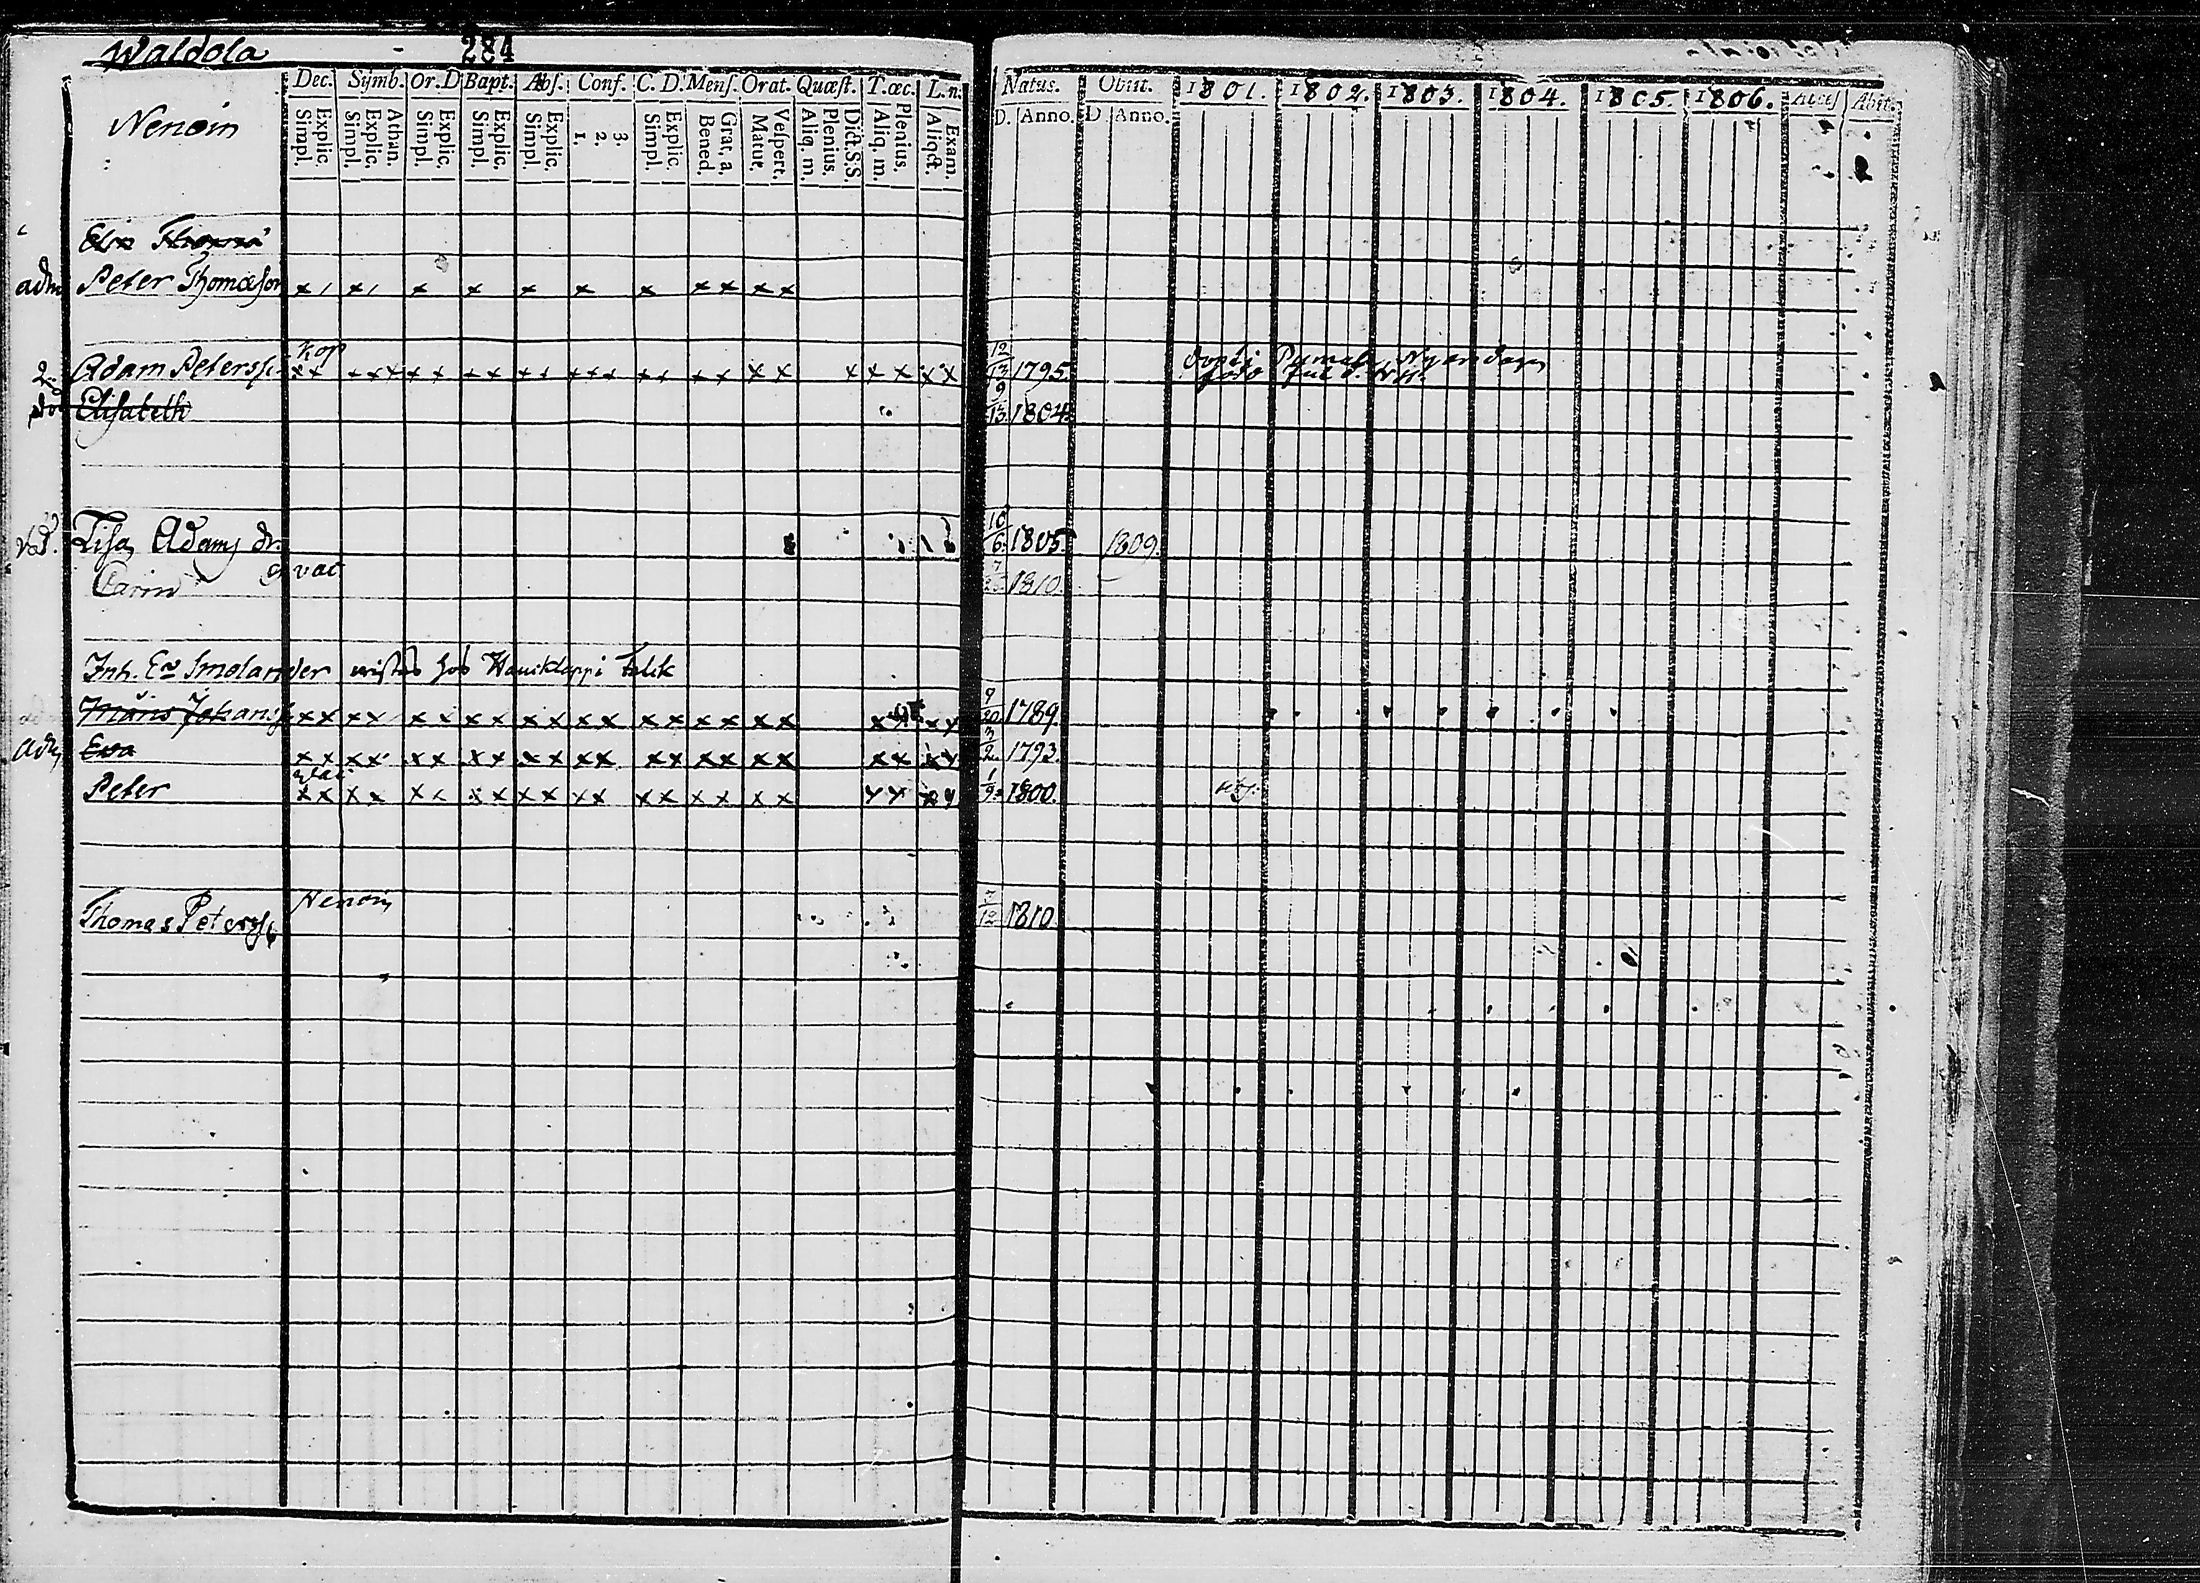 Waldola 284
Dec. Symb. Or. D Bapt. Abſ. Conf. C. D. Menſ. Orat. Quæſt. T. œc. L. n. Natus. Obiit. 1801. 1802. 1803. 1804. 1805. 1806. Acceſ Abit.
Nenoin Explic. Simpl. Athan. Explic. Simpl. Explic. Simpl. Explic. Simpl. Explic. Simpl. 3. 2. 1. Explic. Simpl. Grat. a Bened. Veſpert. Matut. Dict. S. S. Plenius. Aliq. m. Plenius. Aliq. m. Exam. Aliqſt. D. Anno. D Anno.
adm Peter Thomæſon x x x x x x x x x x x
2. Adam Petersſ. x x x x x x x x x x x x x x x x x x x x x x x x x x 12/13 1795.
Eliſabeth 9/13. 1804.
Liſa Adams dr. 10/6. 1805. 1809.
Carin vac 1810.
Inh. Er Smolander hos Hauikloppi
Måns Johansſ. x x x x x x x x x x x x x x x x x x x x x x 9/20. 1789.
adm Eva x x x x x x x x x x x x x x x x x x x x x x 3/2. 1793.
Peter x x x x x x x x x x x x x x x x x x x x x x 1/9. 1800.
Nenoin
Thomas Petersſ. 7/12 1810